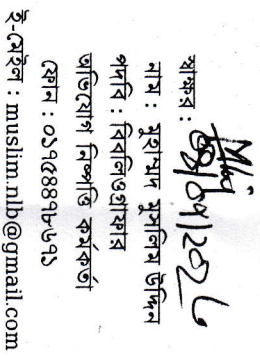 স্বাক্ষর :
নাম : মুহাম্মদ মুসলিম উদ্দিন
পদবি : বিবলিওগ্রাফার
অভিযোগ নিষ্পত্তি কর্মকর্তা
ফোন : ০১৭৫৪৪৭৮৬৭১
ই-মেইল : muslim.nlb@gmail.com